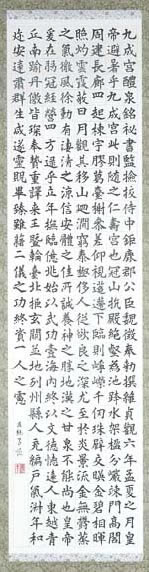 九成宮醴泉銘秘書監檢校侍中鉅鹿郡公臣魏徵奉勅撰維貞觀六年孟夏之月皇
帝避暑乎九成宮此則隨之仁壽宮也冠山抗殿絕壑為池跨水架楹分巖竦闕高閣
周建長廊四起棟宇膠葛臺榭參差仰視下臨則崢嶸千仞珠璧交暎金碧相暉
照灼雲霞蔽日月觀其移山迴澗窮泰極侈以人從欲良足深尤至於炎景流金無鬱蒸
之氣微風徐動有淒清之涼信安體之佳所誠養神之勝地漢之甘泉不能尚也皇帝
爰在弱冠經營四方逮乎立年撫臨億兆始以武功壹海內終以文德懷遠人東越青
丘南踰丹徼皆琛奉贄重譯來王暨輪臺北拒玄闕並地列州縣人充編戶氣淑年和
迩安遠肅群生咸遂靈貺畢臻雖藉二儀之功終資一人之慮